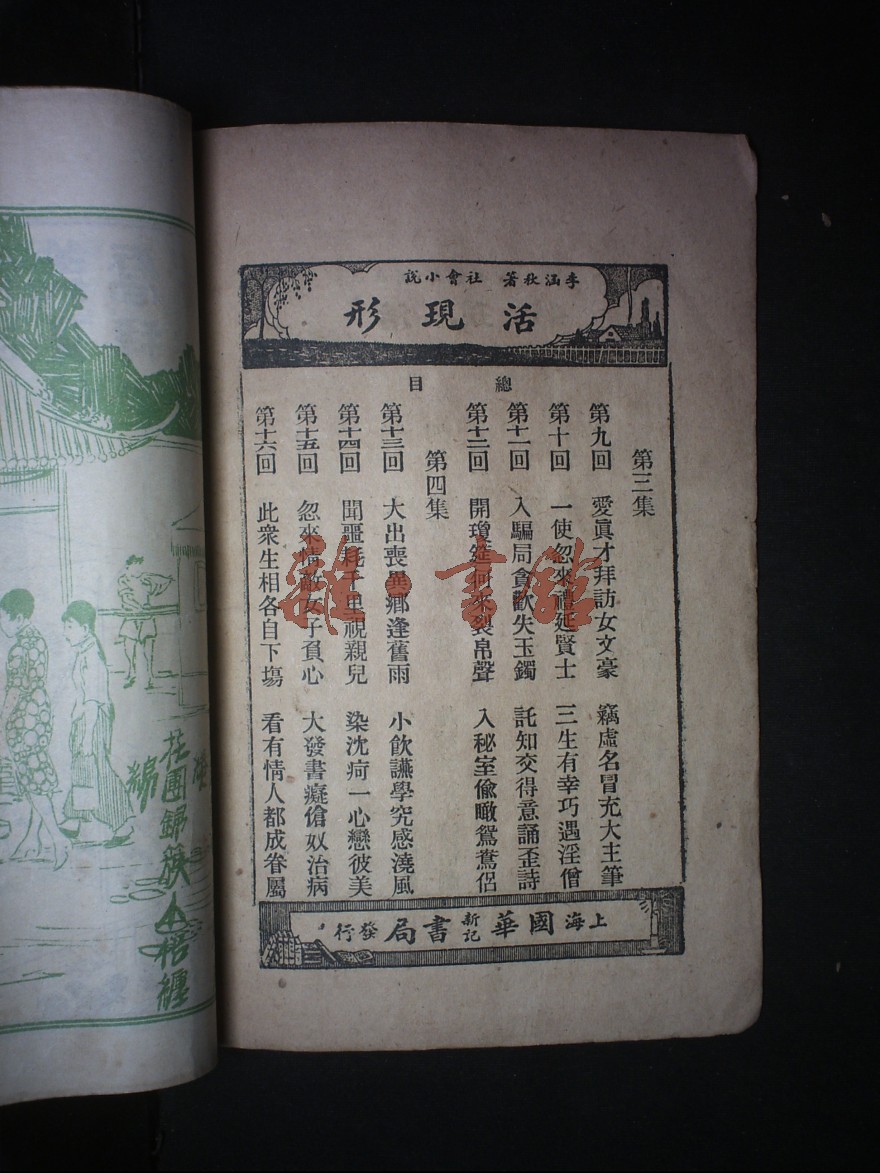 李涵秋著 社會小說
活現形
總目
第三集
第九回 愛眞才拜訪女文豪 竊虛名冒充大主筆
第十回 一使忽來禮延賢士 三生有幸巧遇淫僧
第十一回 入騙局貪歡失玉鐲 託知交得意誦歪詩
第十二回 開瓊筵何來裂帛聲 入秘室偸瞰鴛鴦侶
第四集
第十三回 大出喪異鄉逢舊雨 小飮讌學究感澆風
第十四回 聞噩耗千里視親兒 染沈疴一心戀彼美
第十五回 忽來情敵女子負心 大發書癡傖奴治病
第十六回 此衆生相各自下塲 看有情人都成眷屬
上海國華新記書局發行
雅·書館
花團錦簇